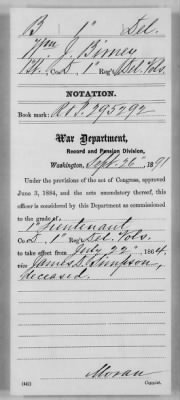 B 1" Del.
Wm. J. Birney
Pt. Co. D, 1" Reg't Del. Vols.
NOTATION.
Book mark: R & P. 295292
War Department,
Record and Pension Division,
Washington, Sept. 26" 1891
Under the provisions of the act of Congress, approved
June 3, 1884, and the acts amendatory thereof, this
officer is considered by this Department as commissioned
to the grade of
1" Lieutenant
Co. D, 1" Reg't Del. Vols.
to take effect from July 22", 1864,
vice James D. Simpson,
deceased.
Moran
(442) Copyist.